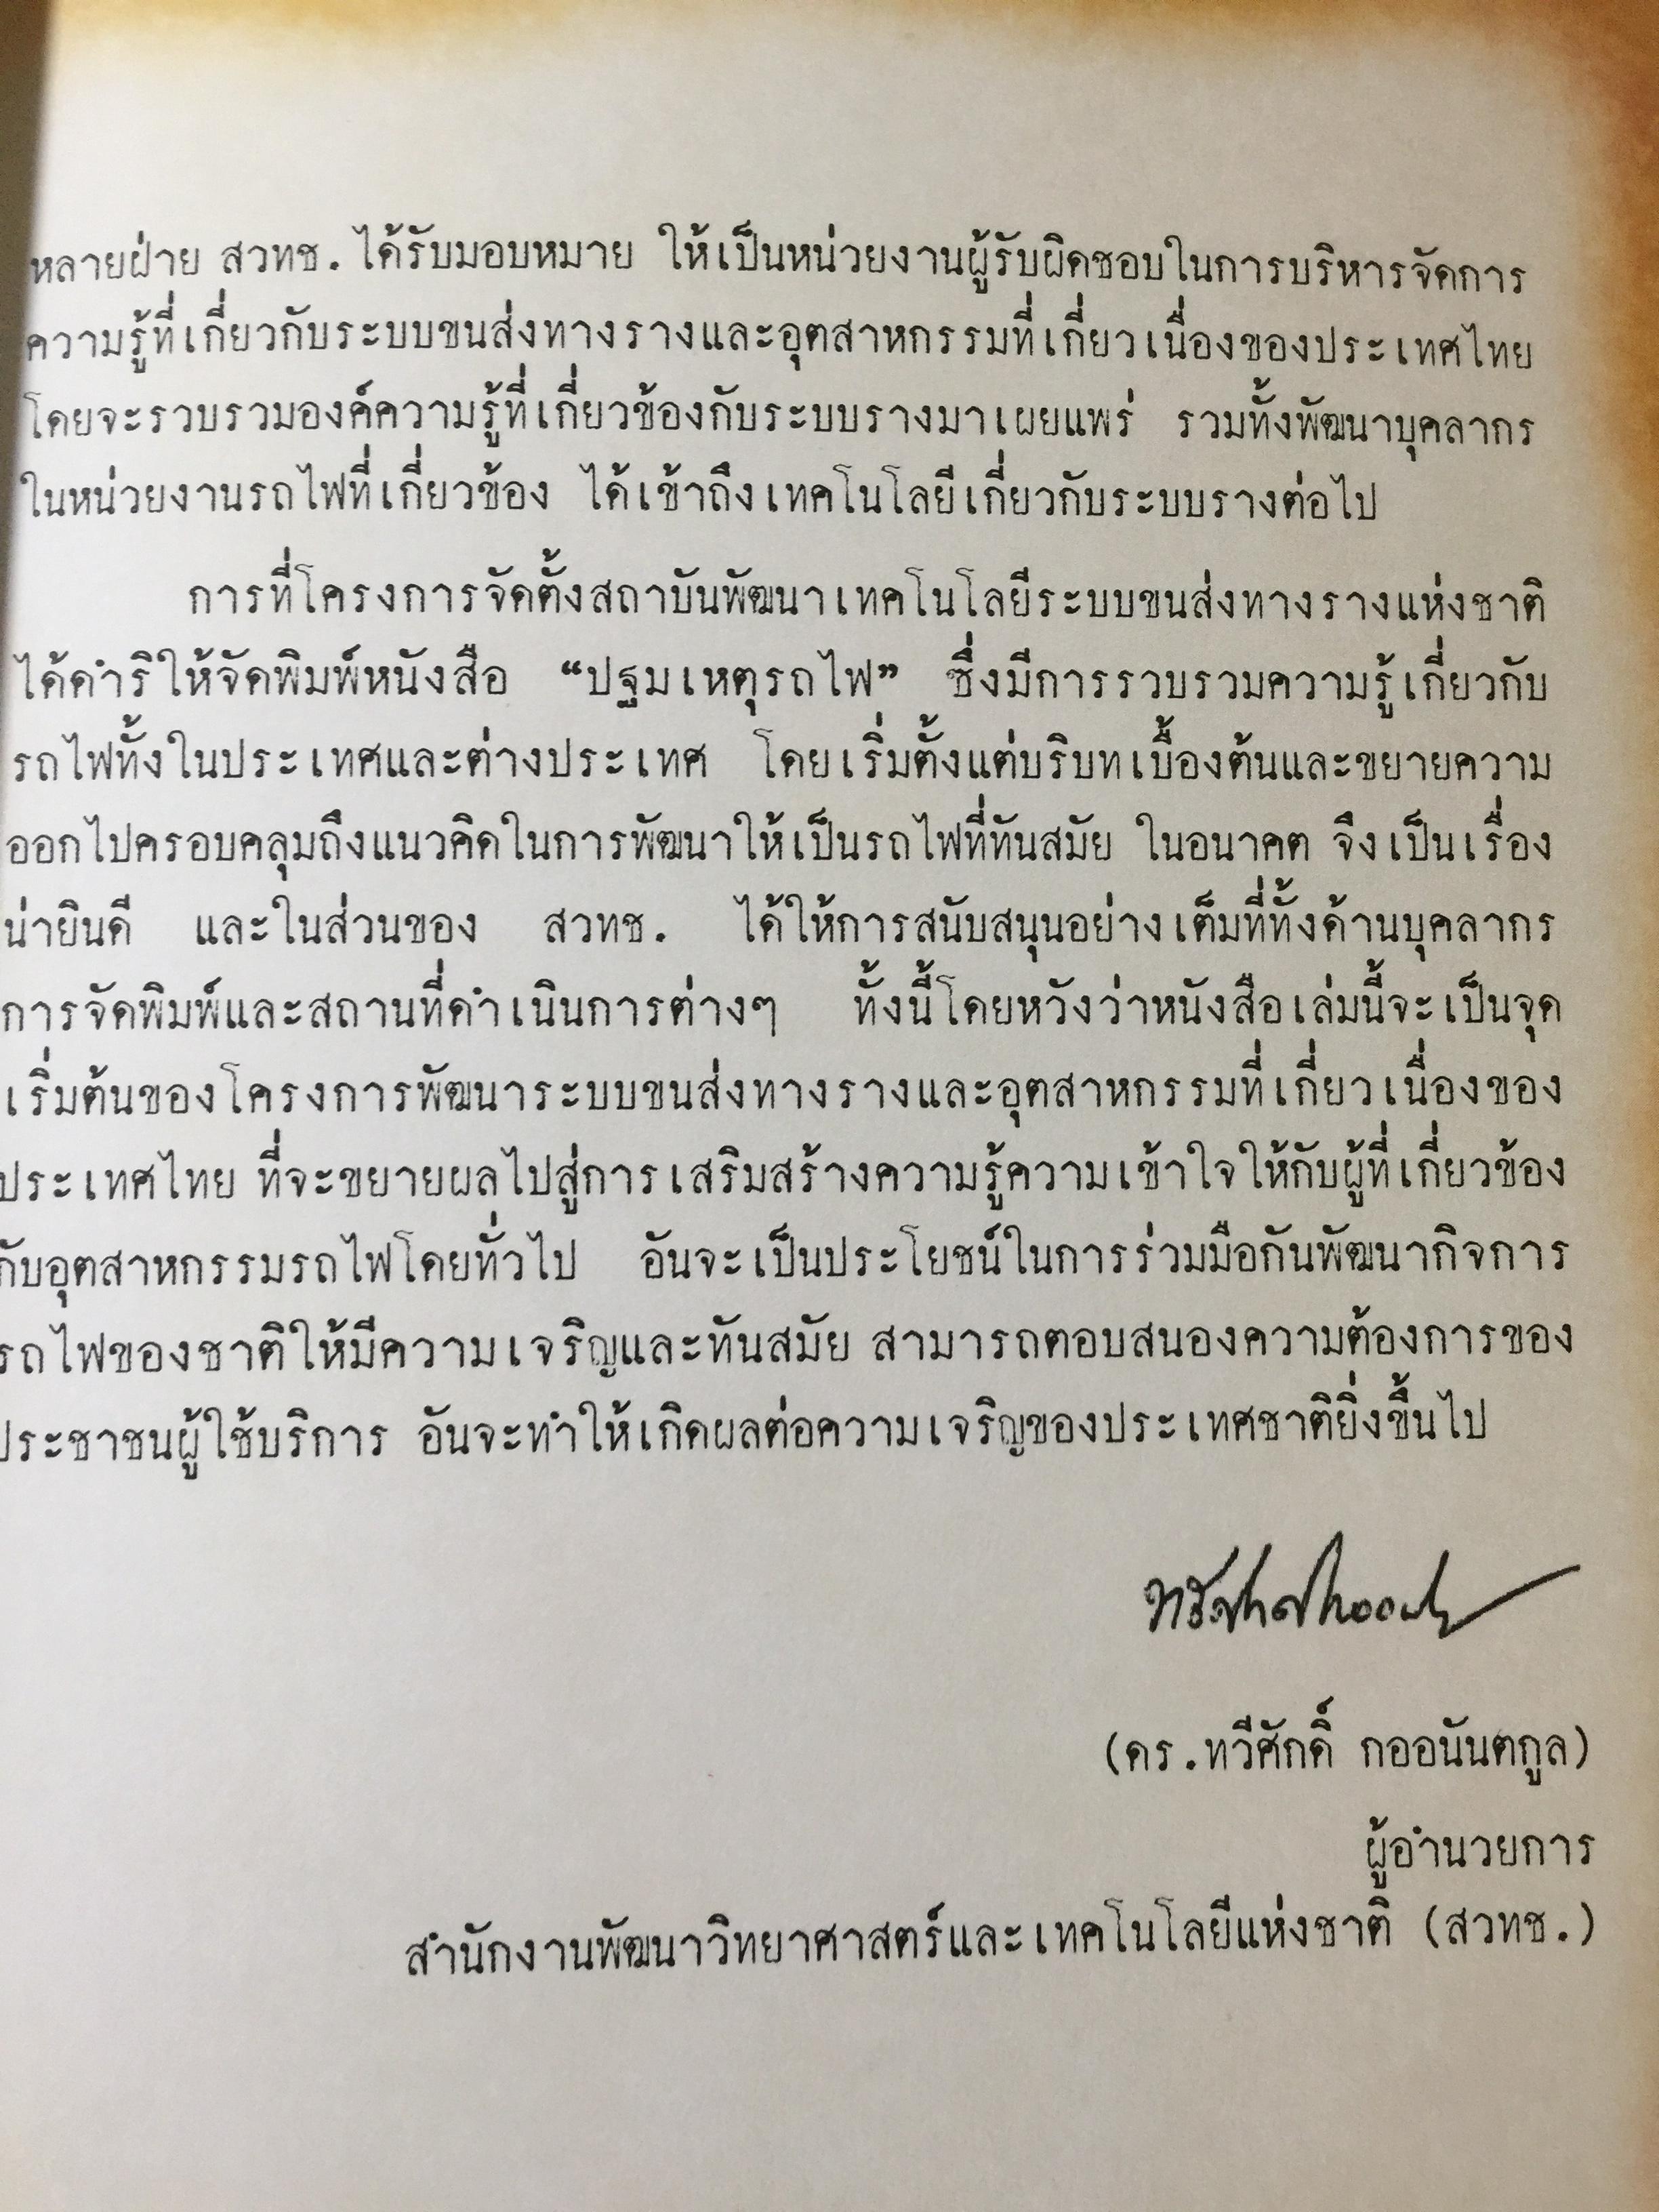 หลายฝ่าย สวทช. ได้รับมอบหมาย ให้เป็นหน่วยงานผู้รับผิดชอบในการบริหารจัดการ
ความรู้ที่เกี่ยวกับระบบขนส่งทางรางและอุตสาหกรรมที่เกี่ยวเนื่องของประเทศไทย
โดยจะรวบรวมองค์ความรู้ที่เกี่ยวข้องกับระบบรางมาเผยแพร่ รวมทั้งพัฒนาบุคลากร
ในหน่วยงานรถไฟที่เกี่ยวข้อง ได้เข้าถึงเทคโนโลยีเกี่ยวกับระบบรางต่อไป
การที่โครงการจัดตั้งสถาบันพัฒนาเทคโนโลยีระบบขนส่งทางรางแห่งชาติ
ได้ดำริให้จัดพิมพ์หนังสือ “ปฐมเหตุรถไฟ” ซึ่งมีการรวบรวมความรู้เกี่ยวกับ
รถไฟทั้งในประเทศและต่างประเทศ โดยเริ่มตั้งแต่บริบทเบื้องต้นและขยายความ
ออกไปครอบคลุมถึงแนวคิดในการพัฒนาให้เป็นรถไฟที่ทันสมัย ในอนาคต จึงเป็นเรื่อง
น่ายินดี และในส่วนของ สวทช. ได้ให้การสนับสนุนอย่างเต็มที่ทั้งด้านบุคลากร
การจัดพิมพ์และสถานที่ดำเนินการต่างๆ ทั้งนี้โดยหวังว่าหนังสือเล่มนี้จะเป็นจุด
เริ่มต้นของโครงการพัฒนาระบบขนส่งทางรางและอุตสาหกรรมที่เกี่ยวเนื่องของ
ประเทศไทย ที่จะขยายผลไปสู่การเสริมสร้างความรู้ความเข้าใจให้กับผู้ที่เกี่ยวข้อง
กับอุตสาหกรรมรถไฟโดยทั่วไป อันจะเป็นประโยชน์ในการร่วมมือกันพัฒนากิจการ
รถไฟของชาติให้มีความเจริญและทันสมัย สามารถตอบสนองความต้องการของ
ประชาชนผู้ใช้บริการ อันจะทำให้เกิดผลต่อความเจริญของประเทศชาติยิ่งขึ้นไป
(ดร.ทวีศักดิ์ กออนันตกูล)
ผู้อำนวยการ
สำนักงานพัฒนาวิทยาศาสตร์และเทคโนโลยีแห่งชาติ (สวทช.)